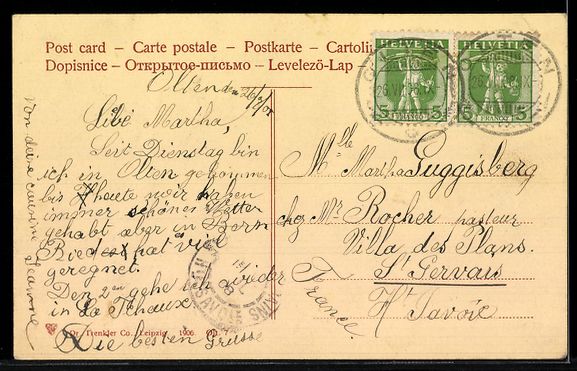 Post card – Carte postale – Postkarte – Cartolin
Dopisnice – Открытое-письмо – Levelező-Lap –
HELVETIA HELVETIA
5 FRANCO 5 FRANCO 5
OLTEN
Olten den 26/7/08
Libe Martha,
Seit Dienstag bin
ich in Olten gekommen
bis heute wir haben
immer schönes Wetter
gehabt aber in Bern
hat viel
geregnet.
Den 2en gehe ich wieder
in La Chaux
Die besten Grüsse
Von deine cousine Jeanne
Mlle Martha Guggisberg
chez Mr Rocher pasteur
Villa des Plans.
St Gervais
Hte Savoie
France.
SAVOIE
Dr. Trenkler Co., Leipzig. 1906.